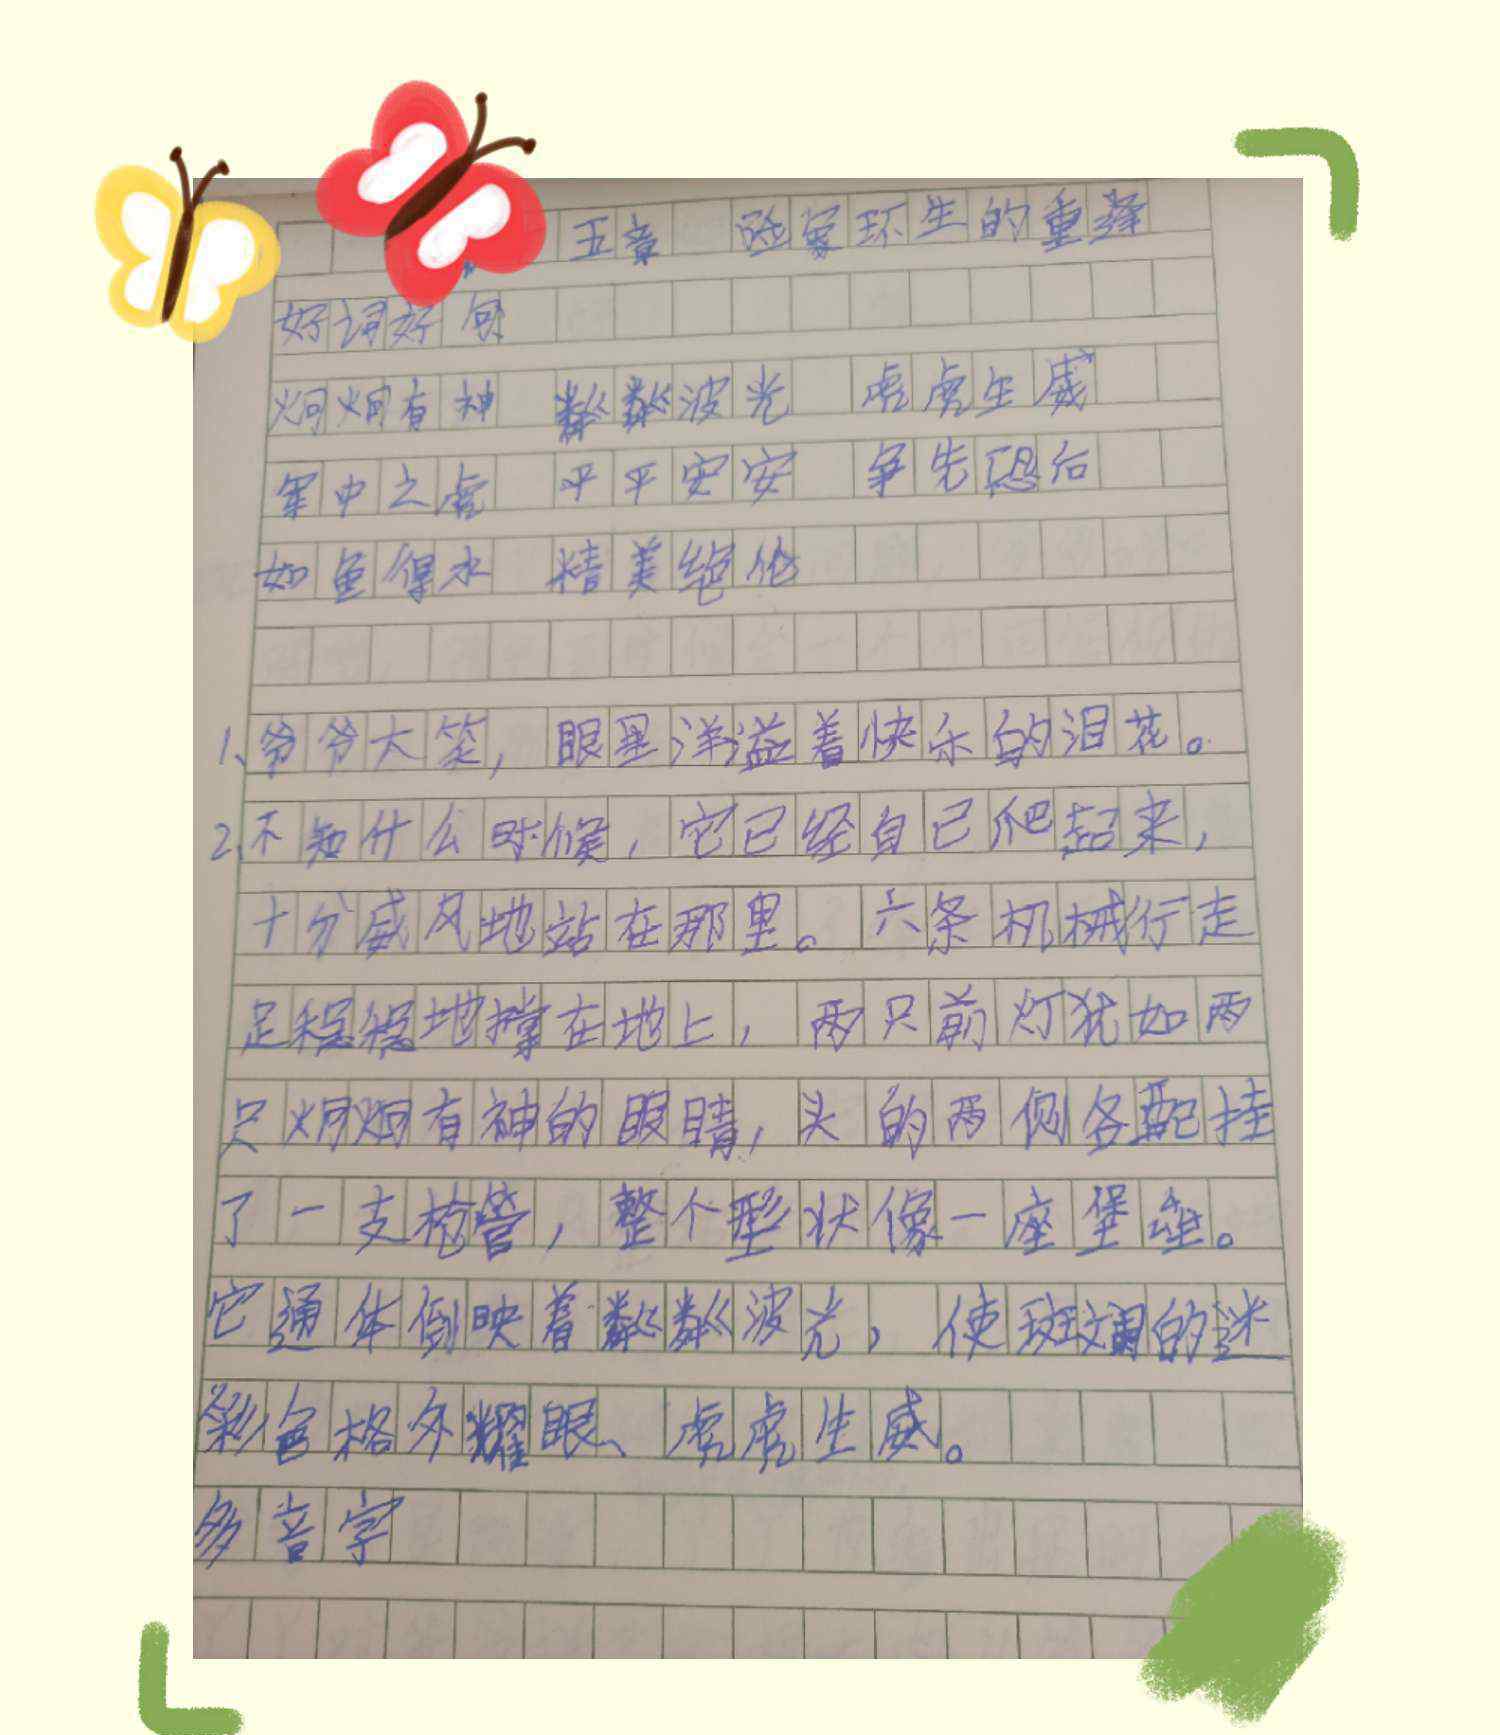 五章 险象环生的重绎
好词好句
炯炯有神 粼粼波光 虎虎生威
军中之虎 平平安安 争先恐后
如鱼得水 精美绝伦
1、爷爷大笑，眼里洋溢着快乐的泪花。
2、不知什么时候，它已经自己爬起来，
十分威风地站在那里。六条机械行走
足稳稳地撑在地上，两只前灯犹如两
只炯炯有神的眼睛，头的两侧各配挂
了一支枪管，整个型状像一座堡垒。
它通体倒映着粼粼波光，使斑斓的迷
彩色格外耀眼、虎虎生威。
多音字